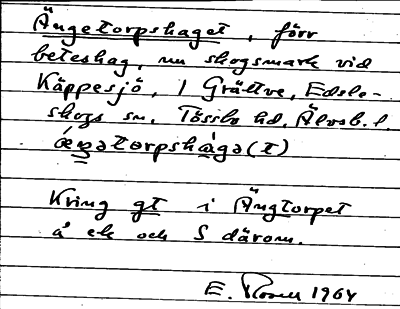 Ängetorpshaget, förr
beteshag, nu skogsmark vid
Käppesjö, 1 Grättve, Edsle-
skogs sn, Tössbo hd, Älvsb. l.
torpshaga(t)
Kring gt i Ängtorpet
å ek och S därom.
E. 1964